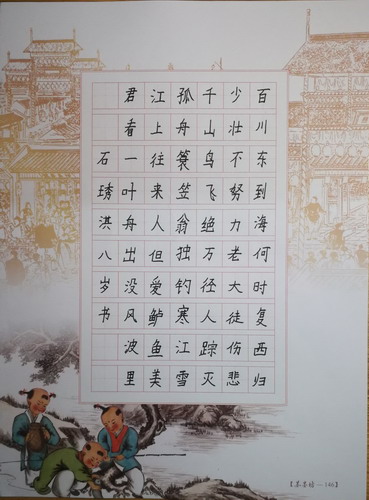 百川东到海何时复西归
少壮不努力老大徒伤悲
千山鸟飞绝万径人踪灭
孤舟蓑笠翁独钓寒江雪
江上往来人但爱鲈鱼美
君看一叶舟出没风波里
石琇淇八岁书
146